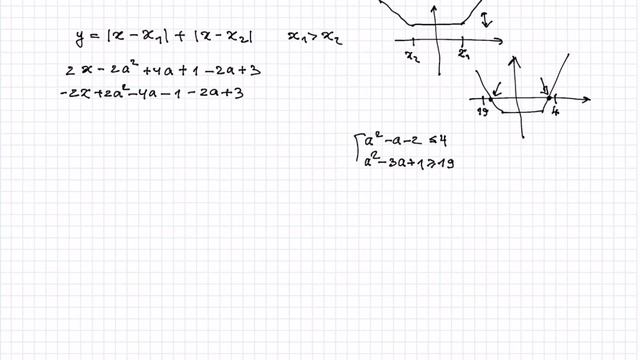 y = |x - x₁| + |x - x₂|    x₁ > x₂
x₂ x₁
2x - 2a² + 4a + 1 - 2a + 3
-2x + 2a² - 4a - 1 - 2a + 3
19 4
a² - a - 2 ≤ 4
a² - 3a + 1 ≥ 19